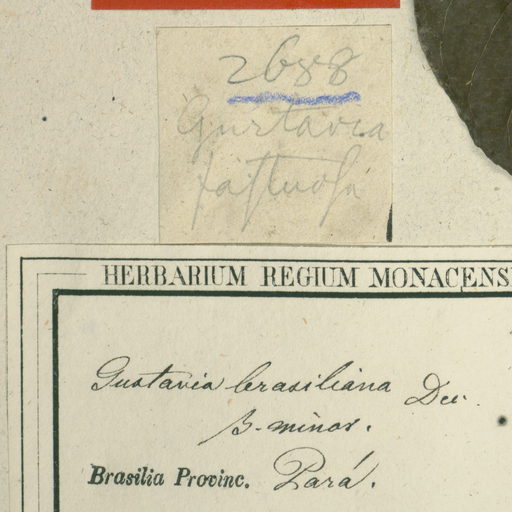 2688
Gustavia
fastuosa
HERBARIUM REGIUM MONACENS
Gustavia brasiliana Dec.
β. minor.
Brasilia Provinc. Pará.